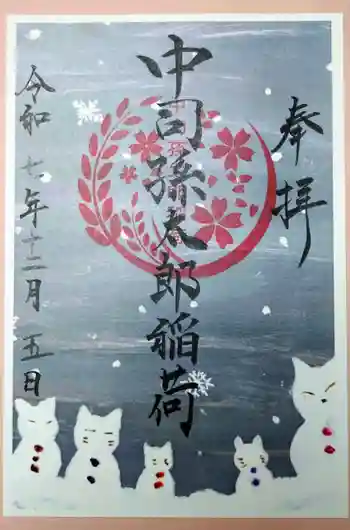 奉拝
中司孫太郎稲荷
令和七年十二月五日